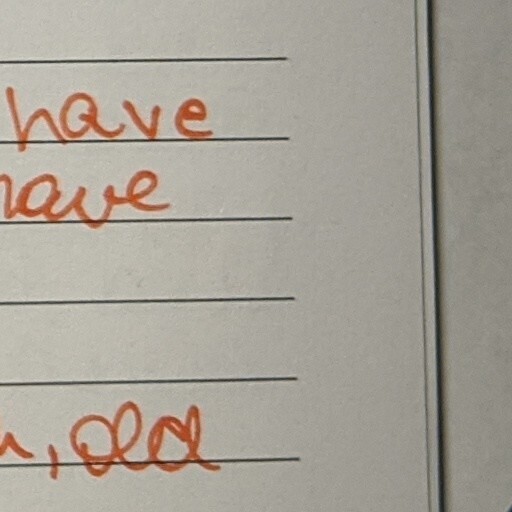 have
have
, old